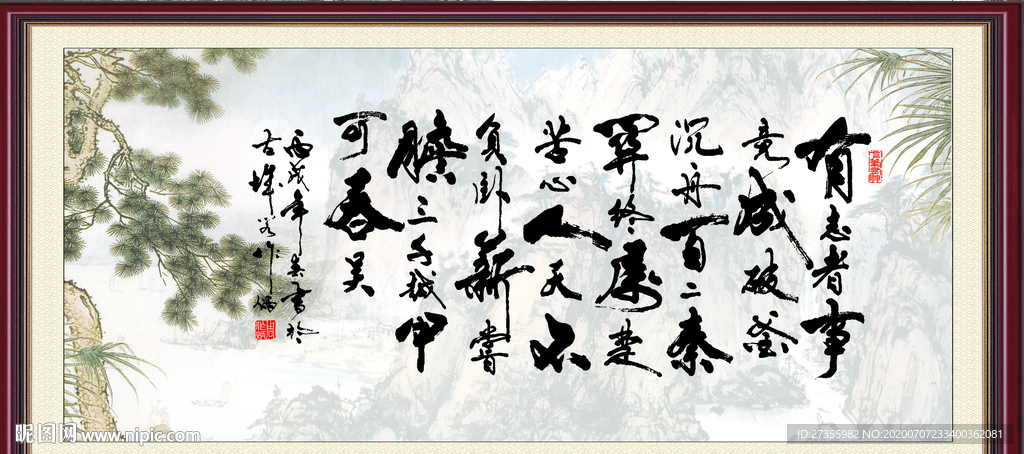 有志者事
竟成破釜
沉舟百二秦
關终属楚
苦心人天不
負卧薪嘗
膽三千越甲
可吞吴
丙戌年書於
古城
昵图网 www.nipic.com
ID:27355982 NO:20200707233400362081